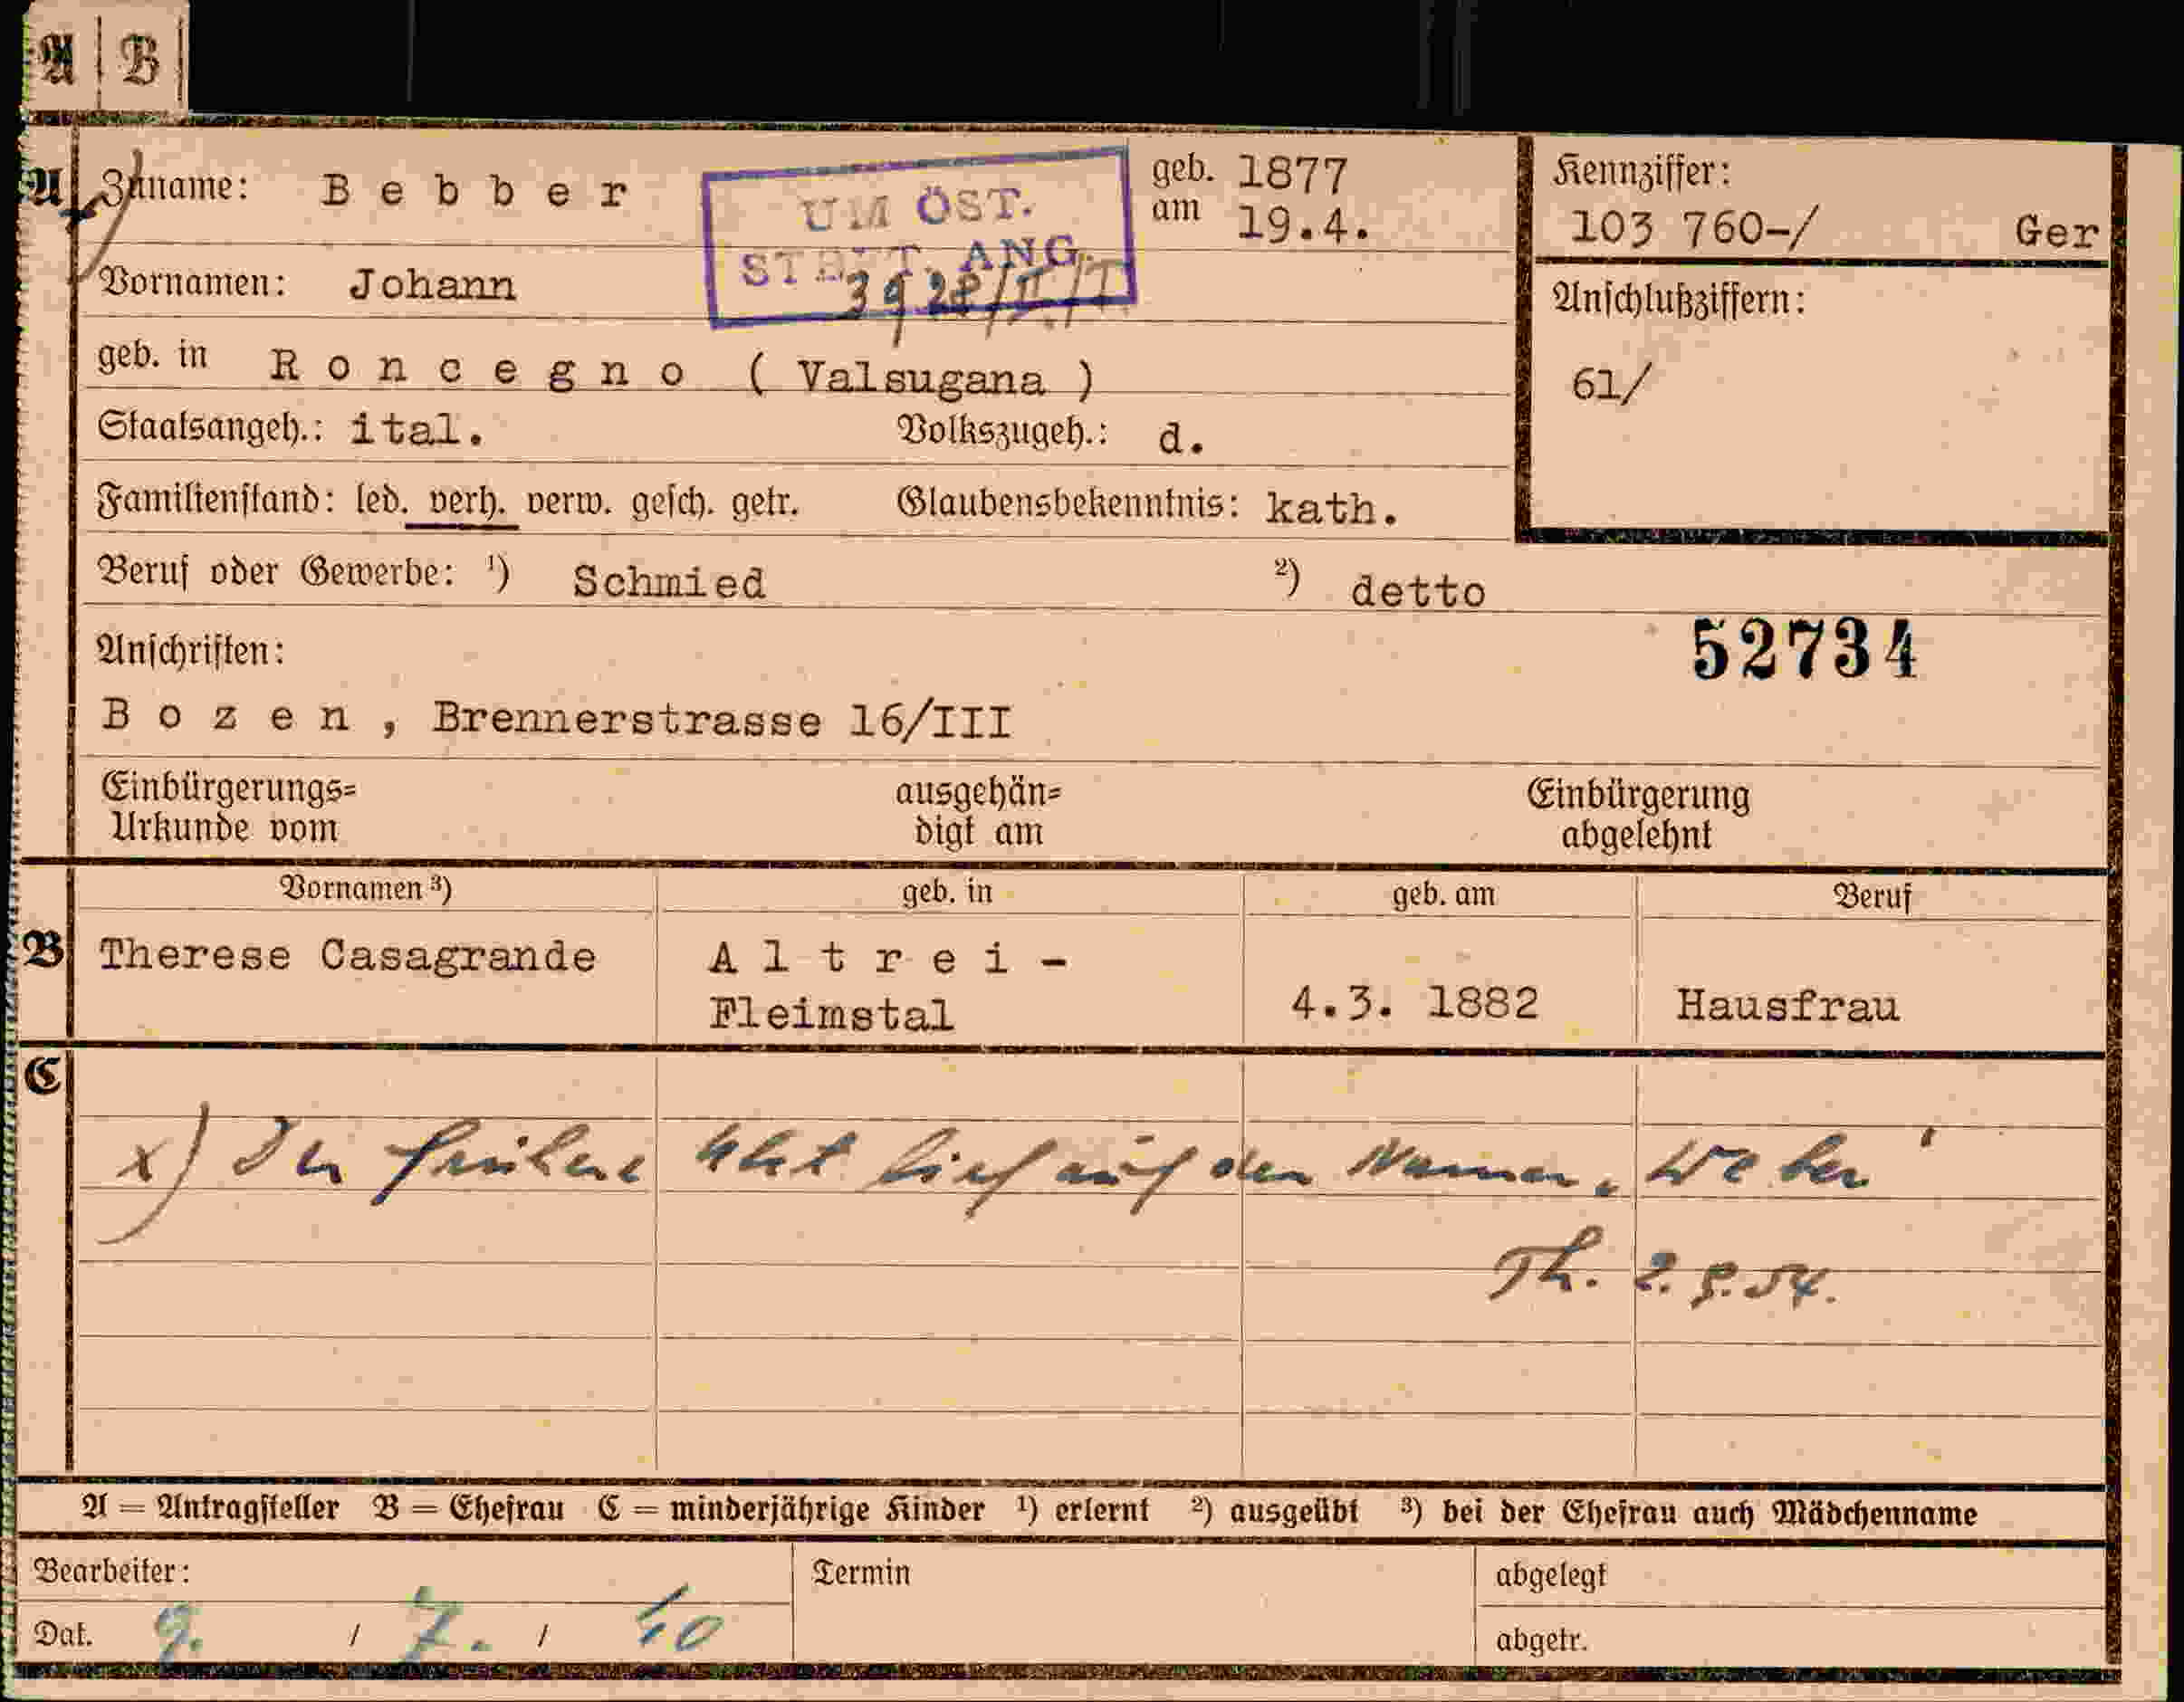 A B
A Zuname: Bebber
UM ÖST.
STAAT. ANG.
geb. am 1877 19.4.
Kennziffer:
103 760-/ Ger
Vornamen: Johann
Anschlußziffern:
61/
geb. in Roncegno ( Valsugana )
Staatsangeh.: ital. Volkszugeh.: d.
Familienstand: led. verh. verw. gesch. getr. Glaubensbekenntnis: kath.
Beruf oder Gewerbe: ¹) Schmied ²) detto
Anschriften: 52734
Bozen, Brennerstrasse 16/III
Einbürgerungs= ausgehän= Einbürgerung
Urkunde vom digt am abgelehnt
Vornamen ³) geb. in geb. am Beruf
B Therese Casagrande Altrei-
Fleimstal 4.3. 1882 Hausfrau
C
x) Der frühere Akt lief auf den Namen „Weber"
Th. 2.8.54.
A = Antragsteller B = Ehefrau C = minderjährige Kinder ¹) erlernt ²) ausgeübt ³) bei der Ehefrau auch Mädchenname
Bearbeiter: Termin abgelegt
Dat. 9. / 7. / 40 abgetr.